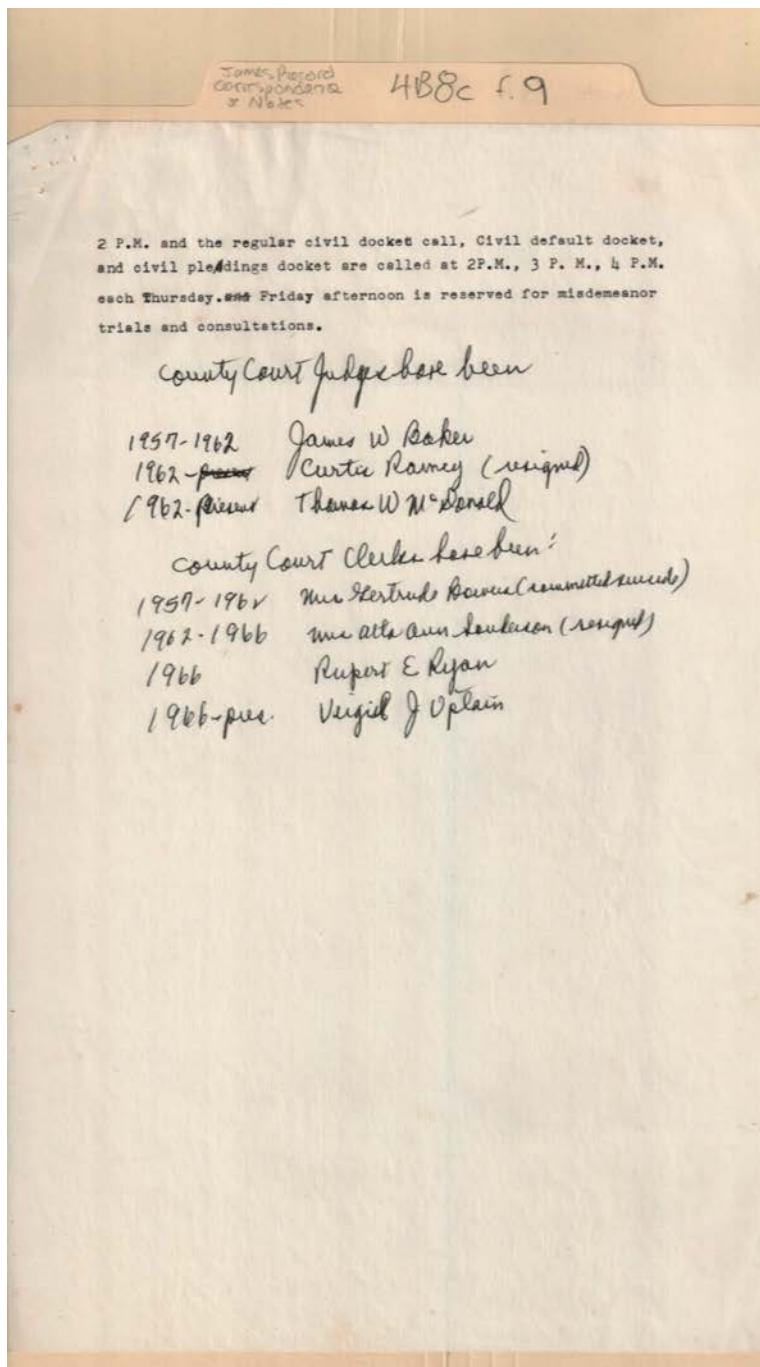 James Record
Correspondence
& Notes
4B8c f.9
2 P.M. and the regular civil docket call, Civil default docket,
and civil pleadings docket are called at 2P.M., 3 P. M., 4 P.M.
each Thursday. and Friday afternoon is reserved for misdemeanor
trials and consultations.
County Court Judges have been
1957-1962 James W Baker
1962-present Curtis Ramey (resigned)
1962-present Thomas W McDonald
County Court Clerks have been:
1957-1962 Mrs Gertrude (committed suicide)
1962-1966 Mrs Alta Ann (resigned)
1966 Rupert E Ryan
1966-pres. Virgil J Uptain